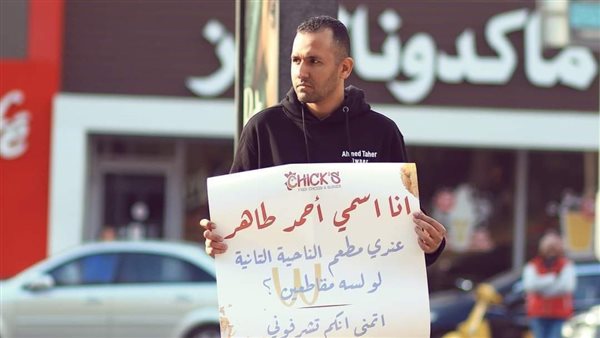 ماكدونالدز
Ahmed Taher
CHICK'S
FRIED CHICKEN & BURGER
انا اسمي أحمد طاهر
عندي مطعم الناحية التانية
لو لسه مقاطعين ؟
اتمنى انكم تشرفوني